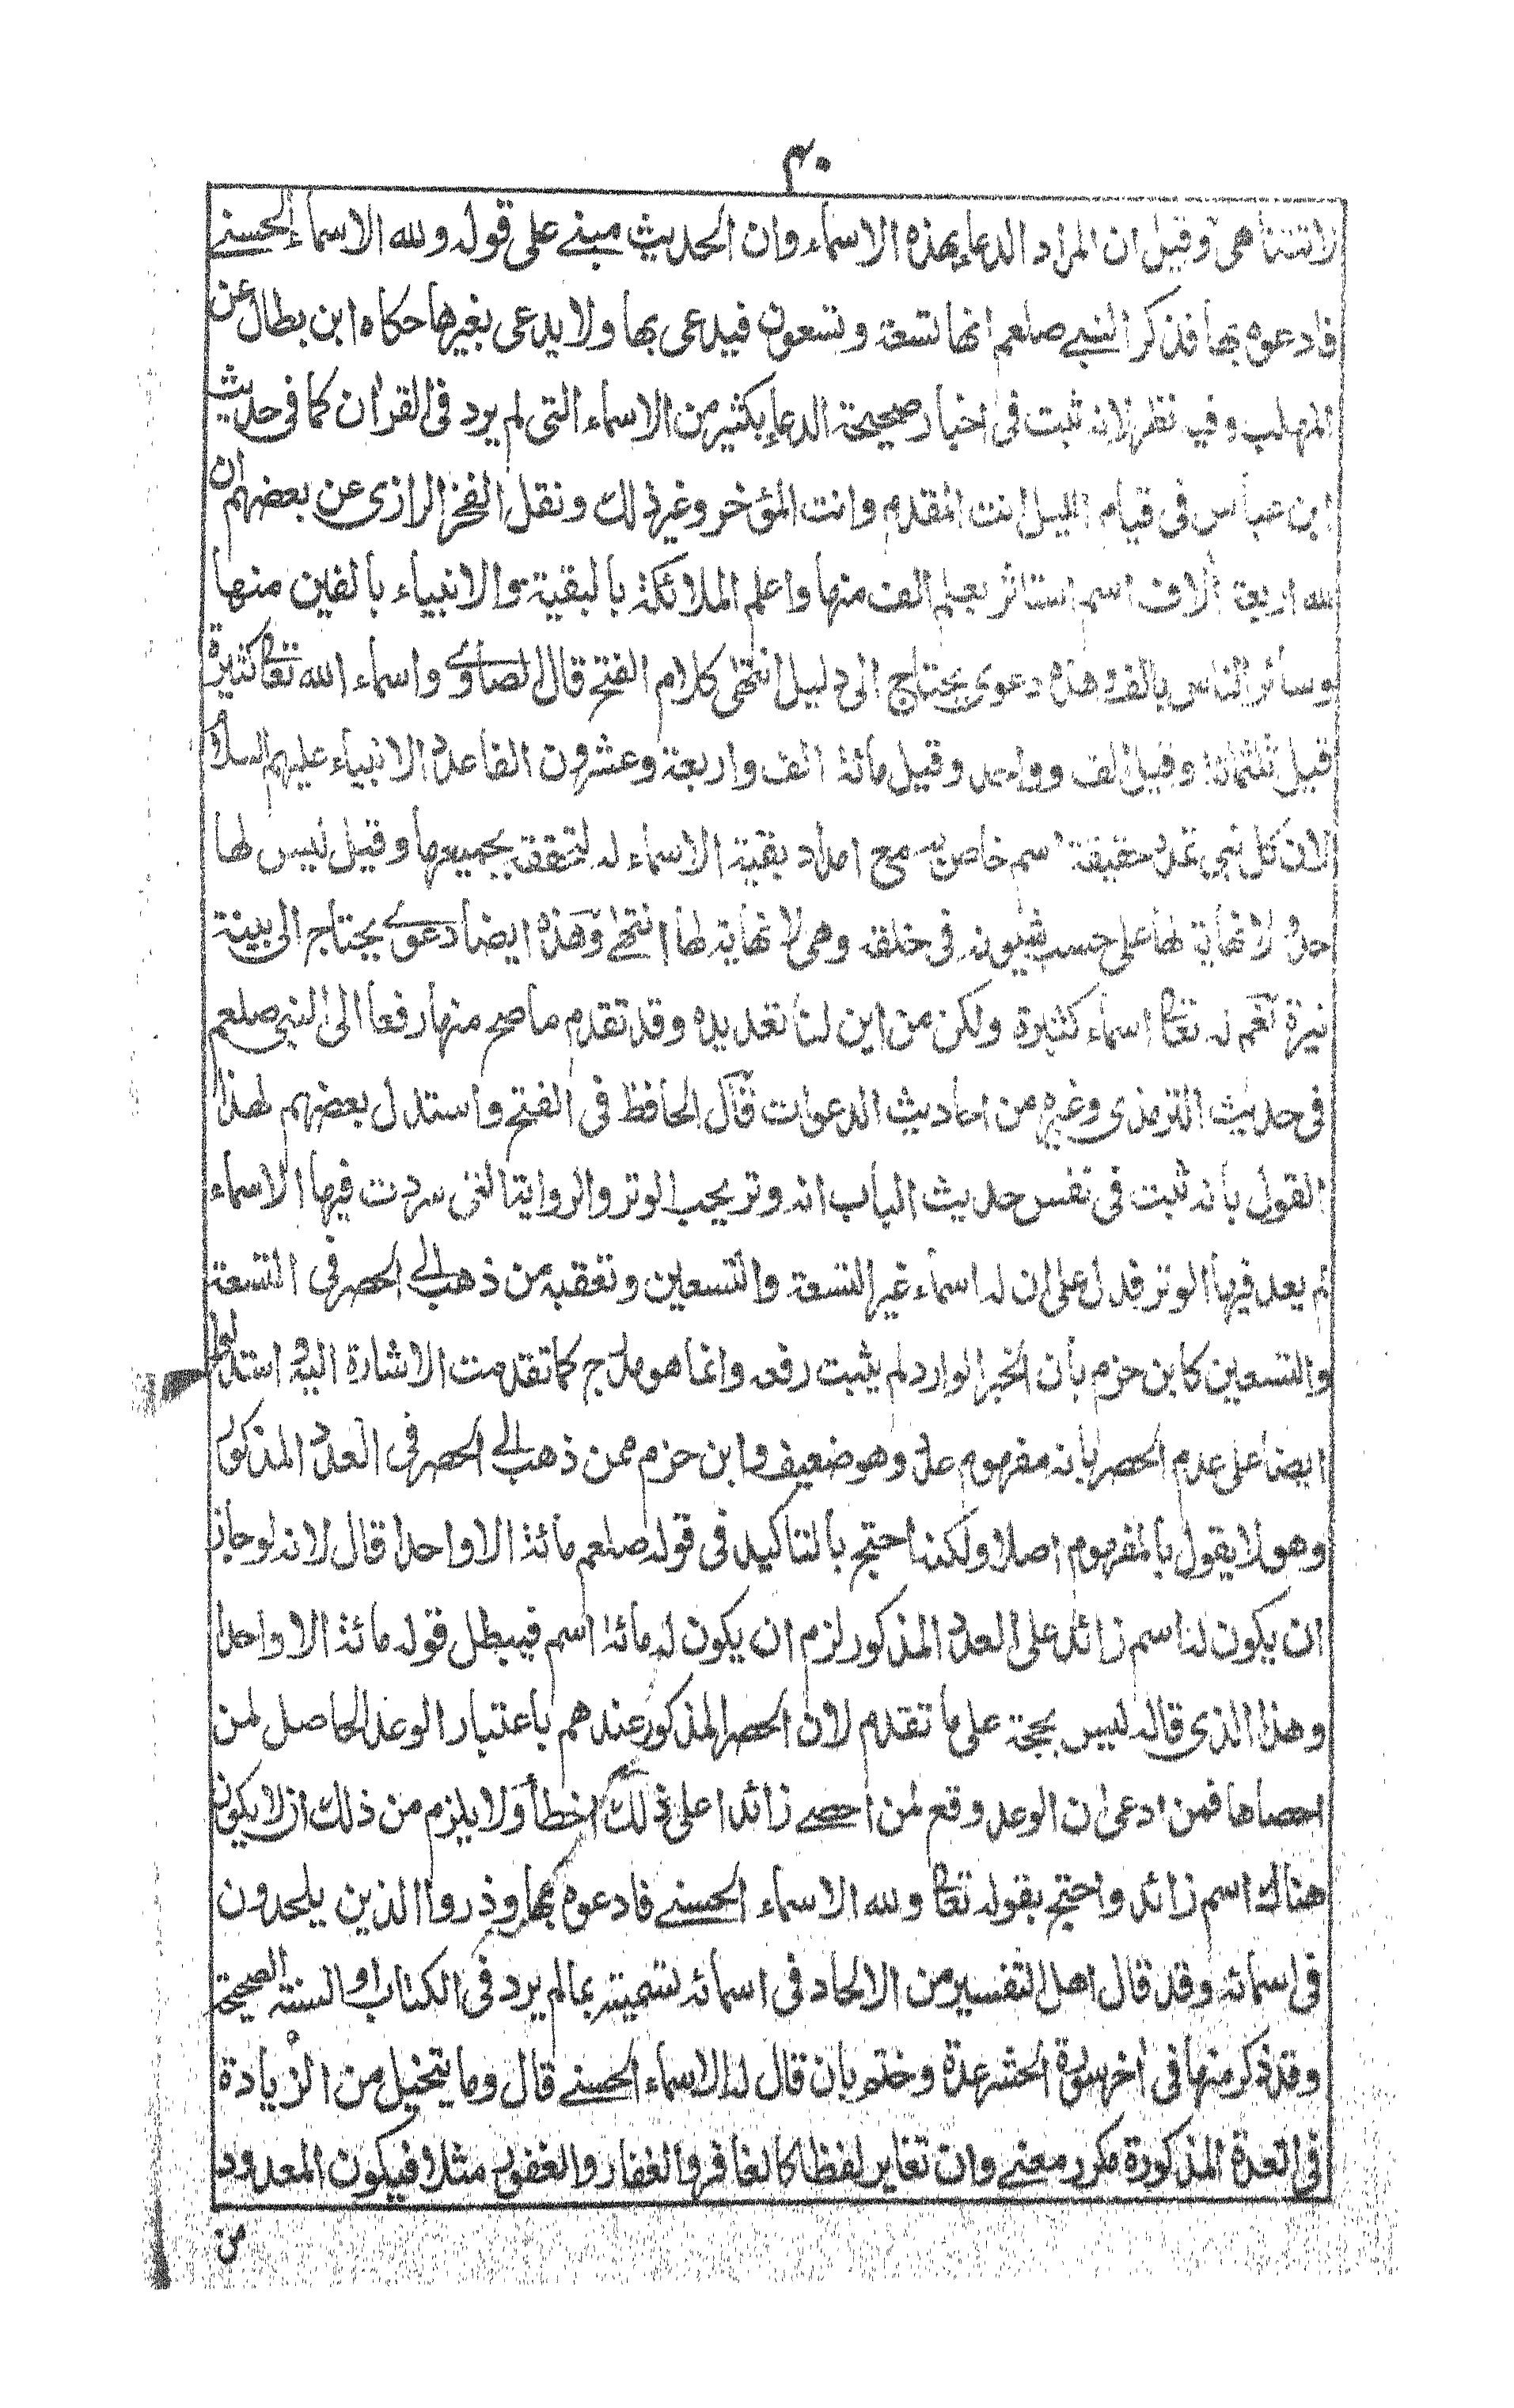 ٤٠
لا تتناهى وقيل ان المراد الدعاء بهذه الاسماء وان الحديث مبنے على قوله ولله الاسماء الحسنے
فادعوه بها فذكر النبے صلعم انها تسعة وتسعون فيدعى بها ولا يدعى بغيرها حكاه ابن بطال عن
المهلب وفيه نظر لانه ثبت فى اخبار صحيحة الدعاء بكثير من الاسماء التى لم يرد فى القران كما فى حديث
ابن عباس فى قيام الليل انت المقدم وانت المؤخر وغير ذلك ونقل الفخر الرازى عن بعضهم ان
لله اربعة ألاف اسم استأثر بعلم الف منها واعلم الملائكة بالبقية والانبياء بالفين منها
وسائر الناس بالف وهذه دعوى يحتاج الى دليل انتهى كلام الفتح قال الصاوے واسماء الله تعالى كثيرة
قيل ثلثمائة وقيل الف وواحد وقيل مائة الف واربعة وعشرون الفا عدد الانبياء عليهم السلام
لان كل نبى تمده حقيقة اسم خاص به مع امداد بقية الاسماء له لتحققه بجميعها وقيل ليس لها
حد ولا نهاية لها على حسب شيونه فى خلقه وهى لا نهاية لها انتهى وهذه ايضا دعوے يحتاج الى بينة
نيرة نعم له تعالى اسماء كثيرة ولكن من اين لنا تعديده وقد تقدم ما صح منها رفعا الى النبى صلعم
فى حديث الترمذى وغيره من احاديث الدعوات قال الحافظ فى الفتح واستدل بعضهم لهذا
القول بأنه ثبت فى نفس حديث الباب انه وتر يحب الوتر والرواية التى سردت فيها الاسماء
لم يعد فيها الوتر فدل على ان له اسماء غير التسعة والتسعين وتعقبه من ذهب الے الحصر فى التسعة
والتسعين كابن حزم بأن الخبر الوارد لم يثبت رفعه وانما هو مدرج كما تقدمت الاشارة اليه واستدلوا
ايضا على عدم الحصر بانه مفهوم عدد وهو ضعيف وابن حزم ممن ذهب الے الحصر فى العدد المذكور
وهو لا يقول بالمفهوم اصلا ولكنه احتج بالتاكيد فى قوله صلعم مائة الا واحدا قال لانه لو جاز
ان يكون له اسم زائد على العدد المذكور لزم ان يكون له مائة اسم فيبطل قوله مائة الا واحدا
وهذا الذى قاله ليس بحجة على ما تقدم لان الحصر المذكور عندهم باعتبار الوعد الحاصل لمن
احصاها فمن ادعى ان الوعد وقع لمن احصے زائدا على ذلك اخطأ ولا يلزم من ذلك ان لا يكون
هناك اسم زائد واحتج بقوله تعالى ولله الاسماء الحسنے فادعوه بها وذروا الذين يلحدون
فى اسمائه وقد قال اهل التفسير من الالحاد فى اسمائه تسميته بما لم يرد فى الكتاب او السنة الصحيحة
وقد ذكر منها فى أخر سورة الحشر عدة وختم بان قال له الاسماء الحسنے قال وما يتخيل من الزيادة
فى العدة المذكورة مكرر معنے وان تغاير لفظا كالغافر والغفار والغفور مثلا فيكون المعدود
من